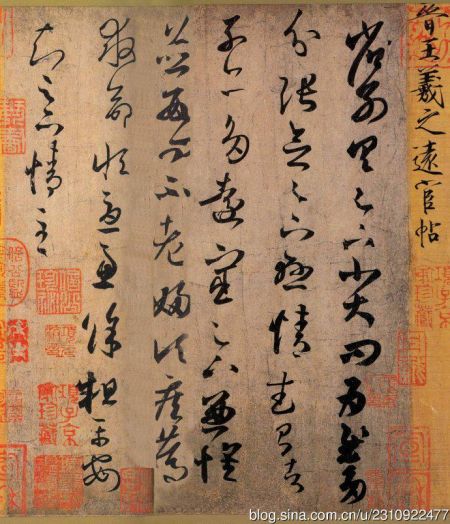 晉王羲之遠宦帖
省別具足下小大問為慰多
分張念足下懸情武昌諸
子亦多遠宦足下兼懷
並數問不老婦頃疾篤
救命恒憂慮餘粗平安
知足下情至
blog.sina.com.cn/u/2310922477